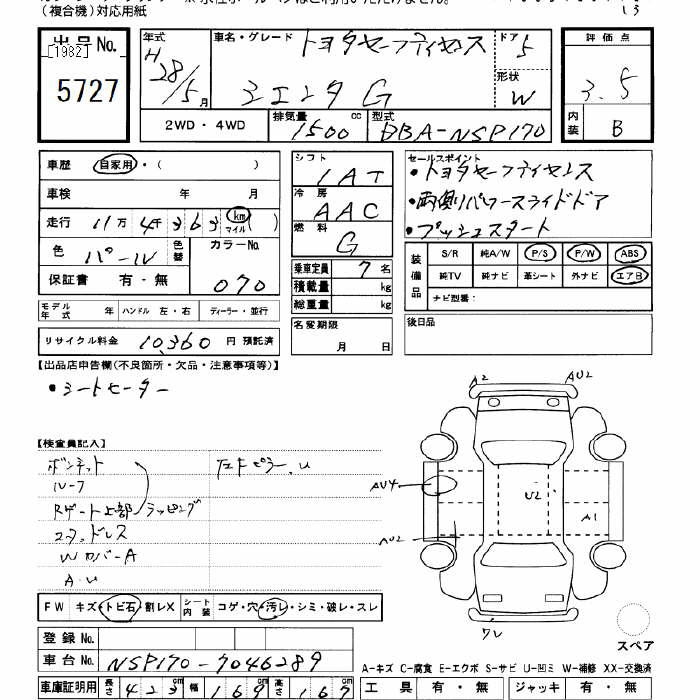 (複合機)対応用紙
L3
出品No.
[1982]
5727
年式
H28/5月
車名・グレード
トヨタセーフティセンス
シエンタ G
ドア
5
形状
W
評価点
3.5
内装
B
2WD・4WD
排気量
1500 cc
型式
DBA-NSP170
車歴 自家用・( )
車検 年 月
走行 11万4千363 km マイル ( )
色 パール
色替
カラーNo.
070
保証書 有・無
モデル年式 年 ハンドル 左・右 ディーラー・並行
リサイクル料金 10,360 円 預託済
シフト
IAT
冷房
AAC
燃料
G
乗車定員 7名
積載量 kg
総重量 kg
名変期限
月 日
セールスポイント
・トヨタセーフティセンス
・両側パワースライドドア
・プッシュスタート
装備品
S/R 純A/W P/S P/W ABS
純TV 純ナビ 革シート 外ナビ エアB
ナビ型番:
後日品
【出品店申告欄(不良箇所・欠品・注意事項等)】
・シートヒーター
【検査員記入】
ボンネット
ルーフ
Rゲート上部 ラッピング
コタッドレス
WカバーA
A.U
左Fピラー.U
FW キズ・トビ石・割レX
シート内装 コゲ・穴・汚レ・シミ・破レ・スレ
登録No.
車台No. NSP170-7046289
車庫証明用 長さ 423cm 幅 169cm 高さ 167
A2
AU2
AU4
U2
A1
AU2
ワレ
スペア
A-キズ C-腐食 E-エクボ S-サビ U-凹ミ W-補修 XX-交換済
工具 有・無 ジャッキ 有・無